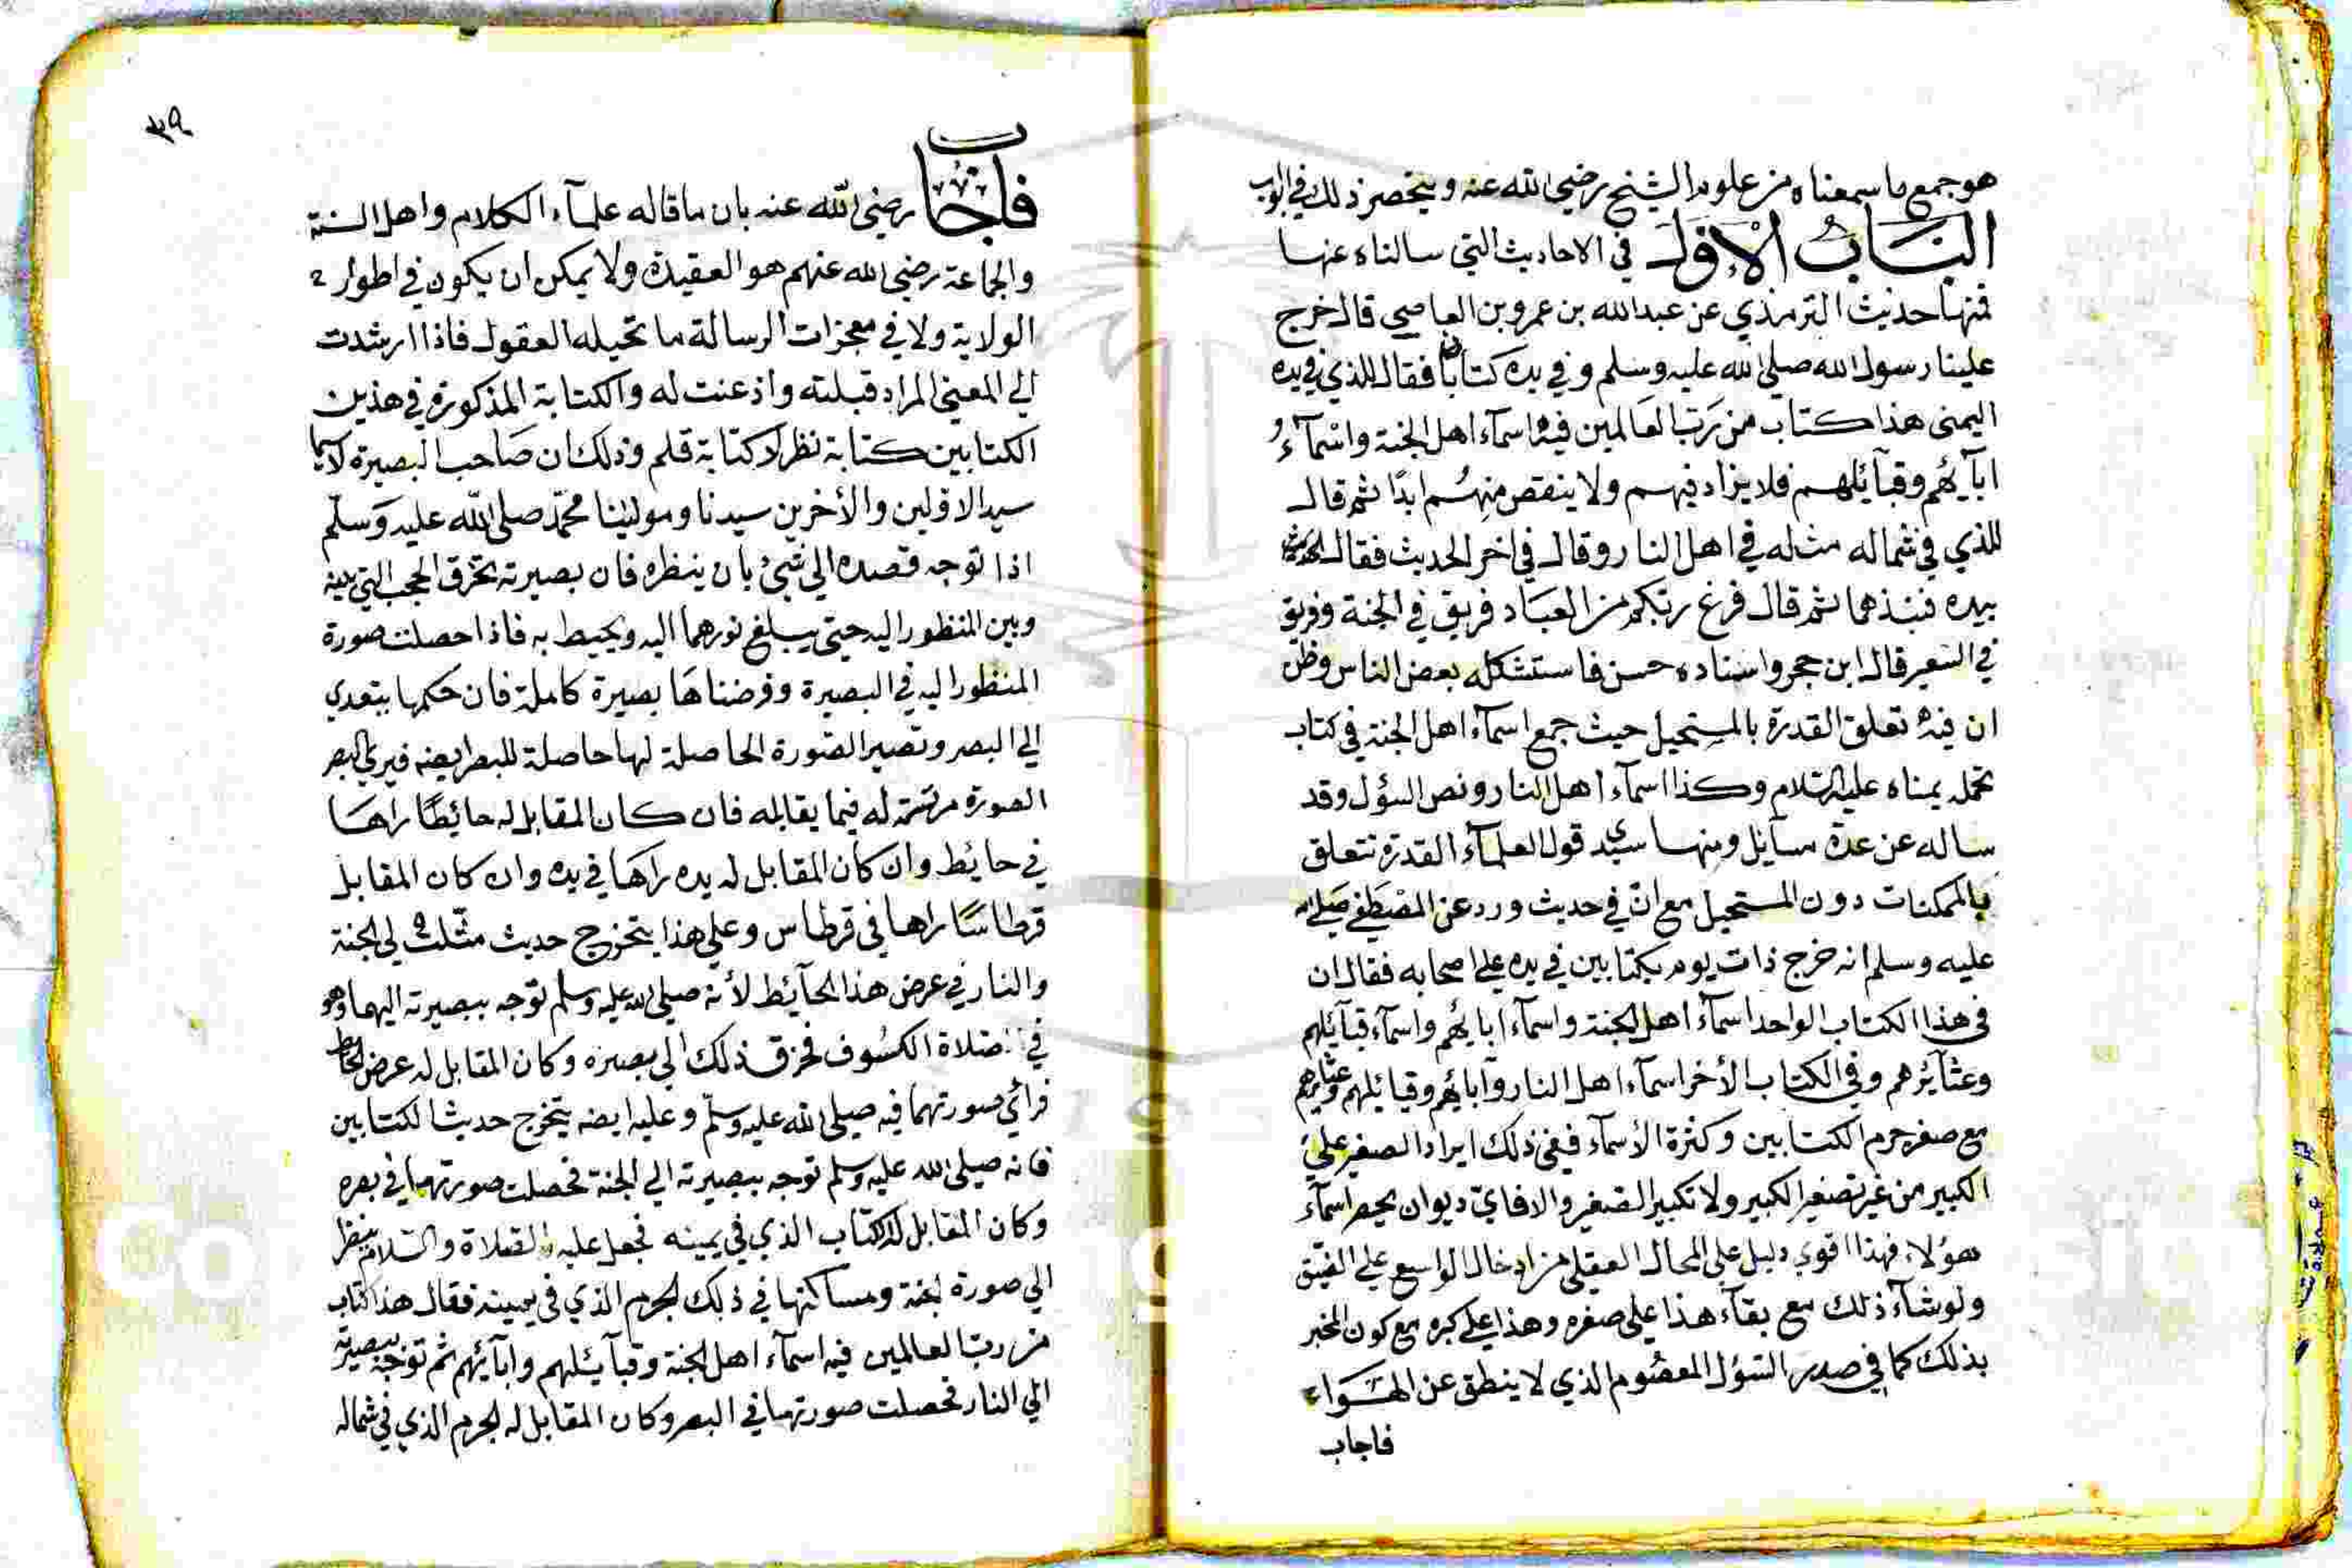 هو جمع ما سمعناه من علوم الشيخ رضي الله عنه وينحصر ذلك في ابواب
الباب الاول في الاحاديث التي سالناه عنها
فمنها حديث الترمذي عن عبدالله بن عمرو بن العاصي قال خرج
علينا رسول الله صلى الله عليه وسلم وفي يده كتابان فقال للذي في يده
اليمنى هذا كتاب من رب العالمين فيه اسماء اهل الجنة واسماء
ابآئهم وقبآئلهم فلا يزاد فيهم ولا ينقص منهم ابدًا ثم قال
للذي في شماله مثله في اهل النار وقال في اخر الحديث فقال
بيده فنبذهما ثم قال فرغ ربكم من العباد فريق في الجنة وفريق
في السعير قال ابن حجر واسناده حسن فاستشكله بعض الناس وظن
ان فيه تعلق القدرة بالمستحيل حيث جمع اسمآء اهل الجنة في كتاب
تحمله يمناه عليه السلام وكذا اسمآء اهل النار ونص السؤل وقد
ساله عن عدة مسآيل ومنها سيدي قول العلمآء القدرة تتعلق
بالممكنات دون المستحيل مع ان في حديث ورد عن المصطفي صلى الله
عليه وسلم انه خرج ذات يوم بكتابين في يده على اصحابه فقال ان
في هذا الكتاب الواحد اسمآء اهل الجنة واسمآء ابائهم واسمآء قبآئلهم
وعشآئرهم وفي الكتاب الأخر اسمآء اهل النار وآبائهم وقبائلهم وعشايرهم
مع صغر جرم الكتابين وكثرة الأسمآء ففي ذلك ايراد الصغير علي
الكبير من غير تصغير الكبير ولا تكبير الصغير والا فايّ ديوان يحصر اسمآء
هؤلاء فهذا اقوي دليل على المحال العقلي من ادخال الواسع علي الضيق
ولو شآء ذلك مع بقآء هذا على صغره وهذا علي كبره مع كون المخبر
بذلك كما في صدر السؤل المعصوم الذي لا ينطق عن الهوا
فاجاب
٣٩
فاجاب رضي الله عنه بان ما قاله علمآء الكلام واهل السنة
والجماعة رضي الله عنهم هو العقيدة ولا يمكن ان يكون في اطوار
الولاية ولا في معجزات الرسالة ما تحيله العقول فاذا ارشدت
الي المعني المراد قبلته واذعنت له والكتابة المذكورة في هذين
الكتابين كتابة نظر لا كتابة قلم وذلك ان صاحب البصيرة لا سيما
سيد الاولين والأخرين سيدنا ومولينا محمد صلى الله عليه وسلم
اذا توجه قصده الي شيء بان ينظره فان بصيرته تخرق الحجب التي بينه
وبين المنظور اليه حتي يبلغ نورهما اليه ويحيط به فاذا حصلت صورة
المنظور اليه في البصيرة وفرضناها بصيرة كاملة فان حكمها يتعدي
الي البصر وتصير الصورة الحاصلة لها حاصلة للبصر ايضه فيري البصر
الصورة مرتسمة له فيما يقابله فان كان المقابل له حائطًا راها
في حايط وان كان المقابل له يده راها في يده وان كان المقابل
قرطاسًا راها في قرطاس وعلي هذا يتخرج حديث مثلت لي الجنة
والنار في عرض هذا الحآئط لأنه صلى الله عليه وسلم توجه ببصيرته اليهما وهو
في صلاة الكسوف فخرق ذلك الي بصره وكان المقابل له عرض الحائط
فرأي صورتهما فيه صلى الله عليه وسلم وعليه ايضه يتخرج حديث الكتابين
فانه صلى الله عليه وسلم توجه ببصيرته الي الجنة فحصلت صورتها في بصره
وكان المقابل له الكتاب الذي في يمينه فجعل عليه الصلاة والسلام ينظر
الي صورة الجنة ومساكنها في ذلك الجرم الذي في يمينه فقال هذا كتاب
من رب العالمين فيه اسمآء اهل الجنة وقبآئلهم وابآئهم ثم توجه ببصيرته
الي النار فحصلت صورتها في البصر وكان المقابل له الجرم الذي في شماله